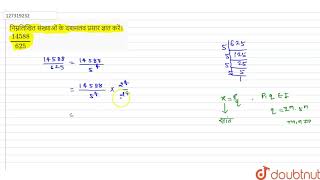 127319232
निम्नलिखित संख्याओं के दशमलव प्रसार ज्ञात करें।
14588
625
14588/625 = 14588/5⁴
= 14588/5⁴ × 2⁴/2⁴
=
5 | 625
5 | 125
5 | 25
5 | 5
1
x = p/q
p, q ∈ I
q = 2ᵐ·5ⁿ
doubtnut